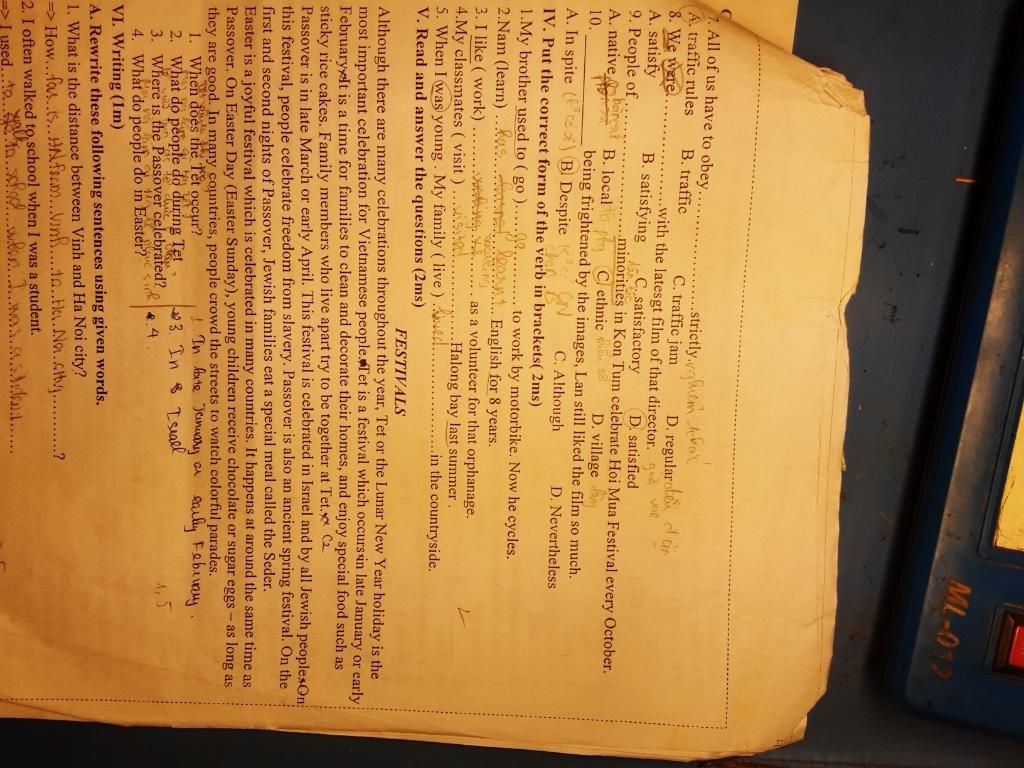 7. All of us have to obey...........................strictly. nghiêm khắc
A. traffic rules B. traffic C. traffic jam D. regular
8. We were.......................with the latesgt film of that director.
A. satisfy B. satisfying C. satisfactory D. satisfied
9. People of.................................minorities in Kon Tum celebrate Hoi Mua Festival every October.
A. native B. local C. ethnic D. village
10. ______________ being frightened by the images, Lan still liked the film so much.
A. In spite B. Despite C. Although D. Nevertheless
IV. Put the correct form of the verb in brackets( 2ms)
1.My brother used to ( go )....go......... to work by motorbike. Now he cycles.
2.Nam (learn) ....has learnt.. English for 8 years.
3. I like ( work) ....working...... as a volunteer for that orphanage.
4.My classmates ( visit ) ...................Halong bay last summer .
5. When I was young. My family ( live ) .lived.............in the countryside.
V. Read and answer the questions (2ms)
FESTIVALS
Although there are many celebrations throughout the year, Tet or the Lunar New Year holiday is the
most important celebration for Vietnamese people. Tet is a festival which occurs in late January or early
February. It is a time for families to clean and decorate their homes, and enjoy special food such as
sticky rice cakes. Family members who live apart try to be together at Tet. C2
Passover is in late March or early April. This festival is celebrated in Israel and by all Jewish people. On
this festival, people celebrate freedom from slavery. Passover is also an ancient spring festival. On the
first and second nights of Passover, Jewish families eat a special meal called the Seder.
Easter is a joyful festival which is celebrated in many countries. It happens at around the same time as
Passover. On Easter Day (Easter Sunday), young children receive chocolate or sugar eggs – as long as
they are good. In many countries, people crowd the streets to watch colorful parades.
1. When does the Tet occur? 1 In late January or early February.
2. What do people do during Tet
3. Where is the Passover celebrated? 3. In Israel
4. What do people do in Easter? 4.
VI. Writing (1m)
A. Rewrite these following sentences using given words.
1. What is the distance between Vinh and Ha Noi city?
=> How...far..is.............Vinh....to..Ha..Noi..city...........?
2. I often walked to school when I was a student.
=> I used...to..walk..to..school....when..I..was..a..student......
ML-013